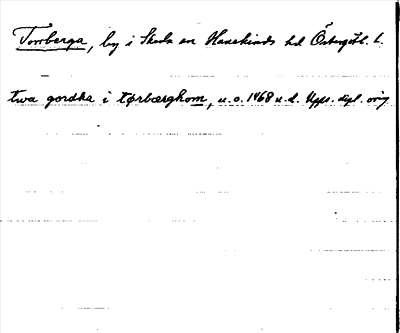 Torrberga, by i Skeda sn Hanekinds hd Östergötl. l.
twa gordha i tørbærghom, u.o. 1468 u.d. Upps. dipl. orig